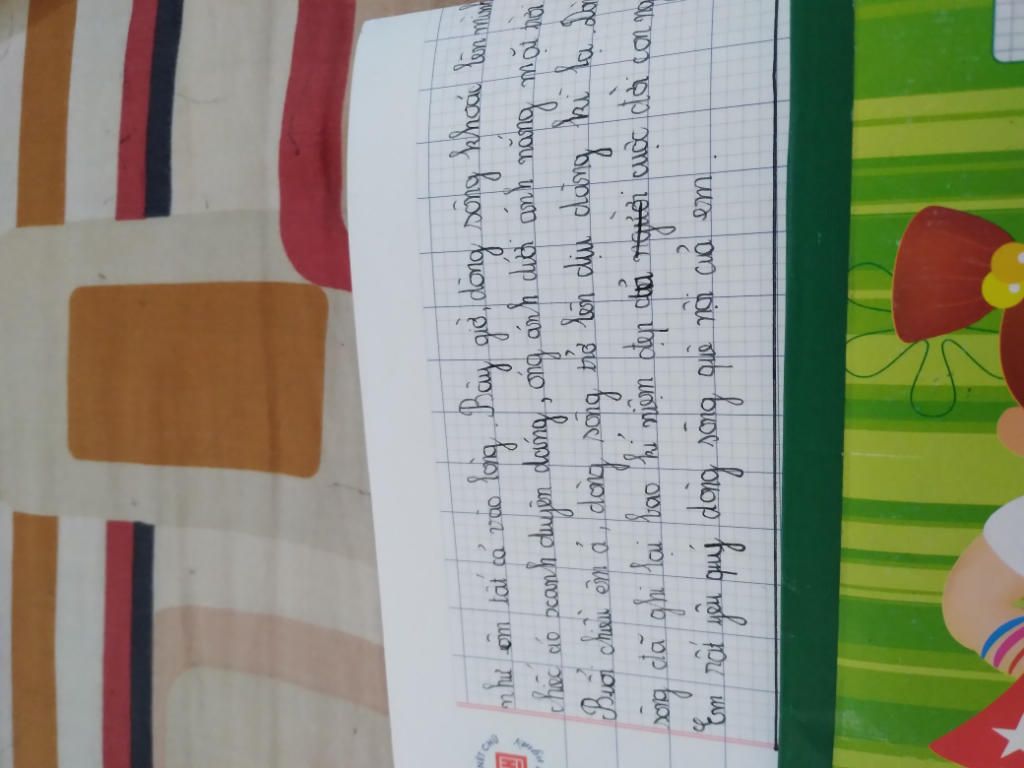 như ôm tất cả vào lòng. Bây giờ, dòng sông khoác lên mình
chiếc áo xanh duyên dáng, óng ánh dưới ánh nắng mặt trời
Buổi chiều êm ả, dòng sông trở lên dịu dàng hiền lại. Dòng
sông đã ghi lại bao kỉ niệm đẹp của người cuộc đời con
Em rất yêu quý dòng sông quê nội của em.